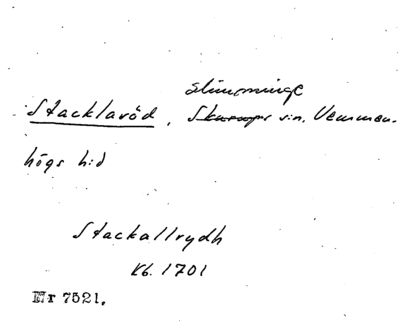 Slimminge
Stacklaröd, Skurups s:n, Vemmen-
högs h:d
Stackallrydh
Kb. 1701
Nr 7521.